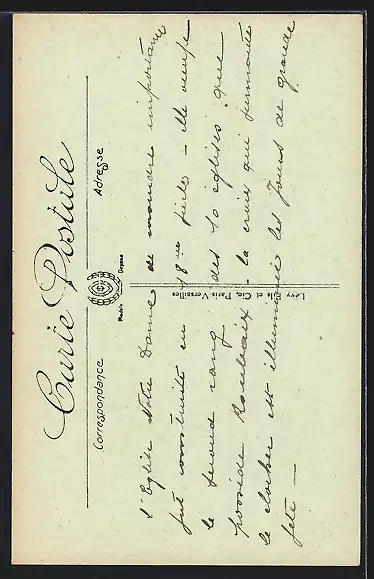 Carte Postale
Correspondance
Adresse
Modèle Déposé
Lévy Fils et Cie, Paris-Versailles
l'Eglise Notre Dame de moindre importance
fut construite en 18me siècle - elle occupe
le second rang des 10 églises que
possède Roubaix - la croix qui surmonte
le clocher est illuminée les jours de grande
fête -